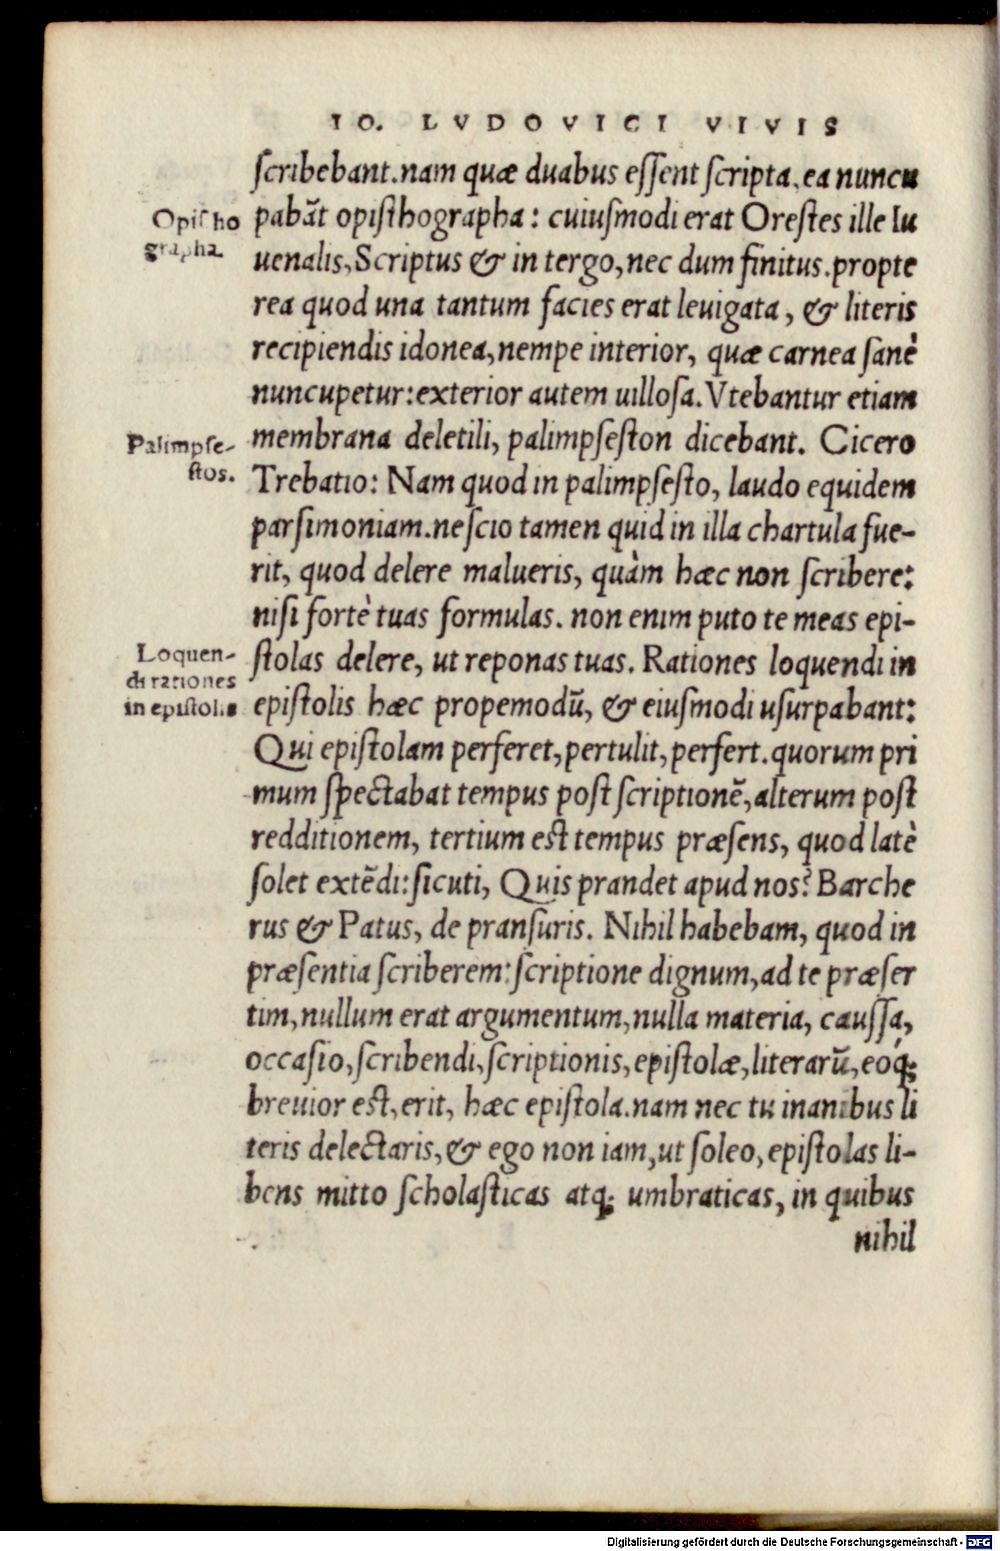 IO. LVDOVICI VIVIS
ſcribebant. nam quæ duabus eſſent ſcripta, ea nuncu
Opiſtho
grapha.
pabāt opiſthographa: cuiuſmodi erat Oreſtes ille Iu
uenalis, Scriptus & in tergo, nec dum finitus. propte
rea quod una tantum facies erat leuigata, & literis
recipiendis idonea, nempe interior, quæ carnea ſanè
nuncupetur: exterior autem uilloſa. Vtebantur etiam
Palimpſe-
ſtos.
membrana deletili, palimpſeſton dicebant. Cicero
Trebatio: Nam quod in palimpſeſto, laudo equidem
parſimoniam. neſcio tamen quid in illa chartula fue-
rit, quod delere malueris, quàm hæc non ſcribere:
niſi fortè tuas formulas. non enim puto te meas epi-
Loquen-
di rationes
in epiſtolis
ſtolas delere, ut reponas tuas. Rationes loquendi in
epiſtolis hæc propemodū, & eiuſmodi uſurpabant:
Qui epiſtolam perferet, pertulit, perfert. quorum pri
mum ſpectabat tempus poſt ſcriptionē, alterum poſt
redditionem, tertium eſt tempus præſens, quod latè
ſolet extēdi: ſicuti, Quis prandet apud nos? Barche
rus & Patus, de pranſuris. Nihil habebam, quod in
præſentia ſcriberem: ſcriptione dignum, ad te præſer
tim, nullum erat argumentum, nulla materia, cauſſa,
occaſio, ſcribendi, ſcriptionis, epiſtolæ, literarū, eóq;
breuior eſt, erit, hæc epiſtola. nam nec tu inanibus li
teris delectaris, & ego non iam, ut ſoleo, epiſtolas li-
bens mitto ſcholaſticas atq; umbraticas, in quibus
nihil
Digitalisierung gefördert durch die Deutsche Forschungsgemeinschaft - DFG